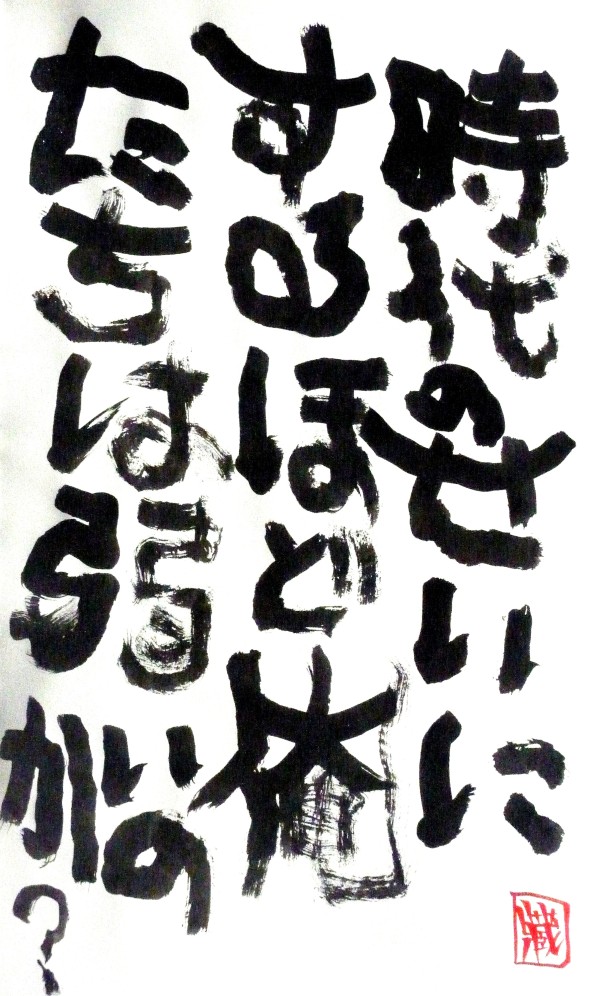 時代のせいに
するほど俺
たちは弱いのか?